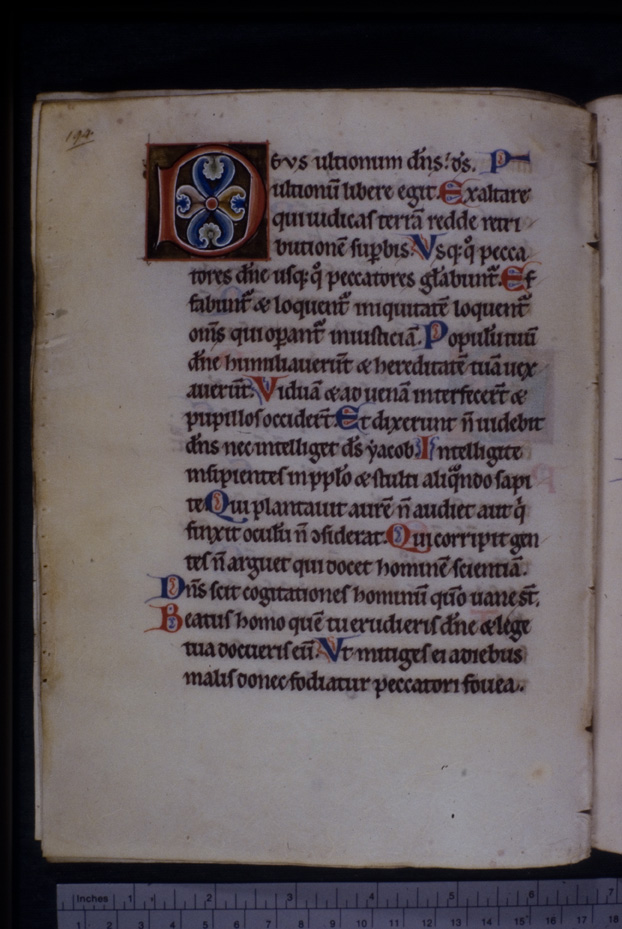 194
DEVS ultionum dn̄s: d̄s. D
ultionū libere egit. Exaltare
qui iudicas terrā redde retri
butionē supbis. Vsq; q̊ pecca
tores dn̄e usq; q̊ peccatores gl̄abunt̄. Ef
fabunt̄ & loquent̄ iniquitatē loquent̄
om̄s qui opant̄ iniusticiā. Populū tuū
dn̄e humiliaverūt & hereditatē tuā vex
averūt. Viduā & advenā interfecer̄t &
pupillos occider̄t. Et dixerunt n̄ uidebit
dn̄s nec intelliget d̄s yacob. Intelligite
insipientes in pplo & stulti aliqn̄do sapi
te. Qui plantauit aurē n̄ audiet aut q̇
finxit oculū n̄ ɔsiderat. Qui corripit gen
tes n̄ arguet qui docet hominē scientiā.
Dn̄s scit cogitationes hominū qm̄o uane st̄.
Beatus homo quē tu erudieris dn̄e & lege
tua docueris eū. Vt mitiges ei a diebus
malis donec fodiatur peccatori fouea.
Inches 1 2 3 4 5 6 7
1 2 3 4 5 6 7 8 9 10 11 12 13 14 15 16 17 18